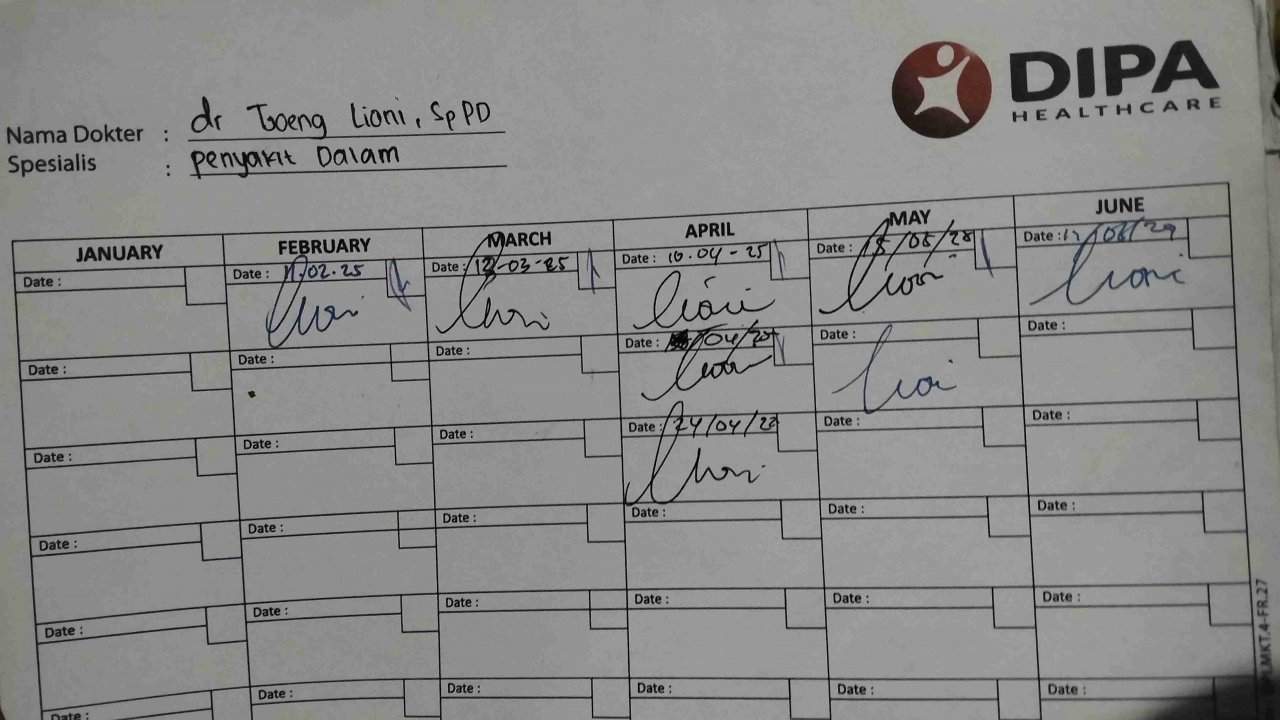 DIPA
HEALTHCARE
Nama Dokter : dr Tjoeng Lioni, SpPD
Spesialis : Penyakit Dalam
JANUARY FEBRUARY MARCH APRIL MAY JUNE
Date : Date : 11.02.25 Date : 12-03-25 Date : 10.04-25 Date : 15/05/25 Date :
Lioni Lioni Lioni Lioni Lioni
Date : Date : Date : Date : /04/25 Date : Date :
Lioni Lioni
Date : Date : Date : Date : 24/04/25 Date : Date :
Lioni
Date : Date : Date : Date : Date : Date :
Date : Date : Date : Date : Date : Date :
Date : Date : Date : Date : Date : Date :
MKT.4-FR.27